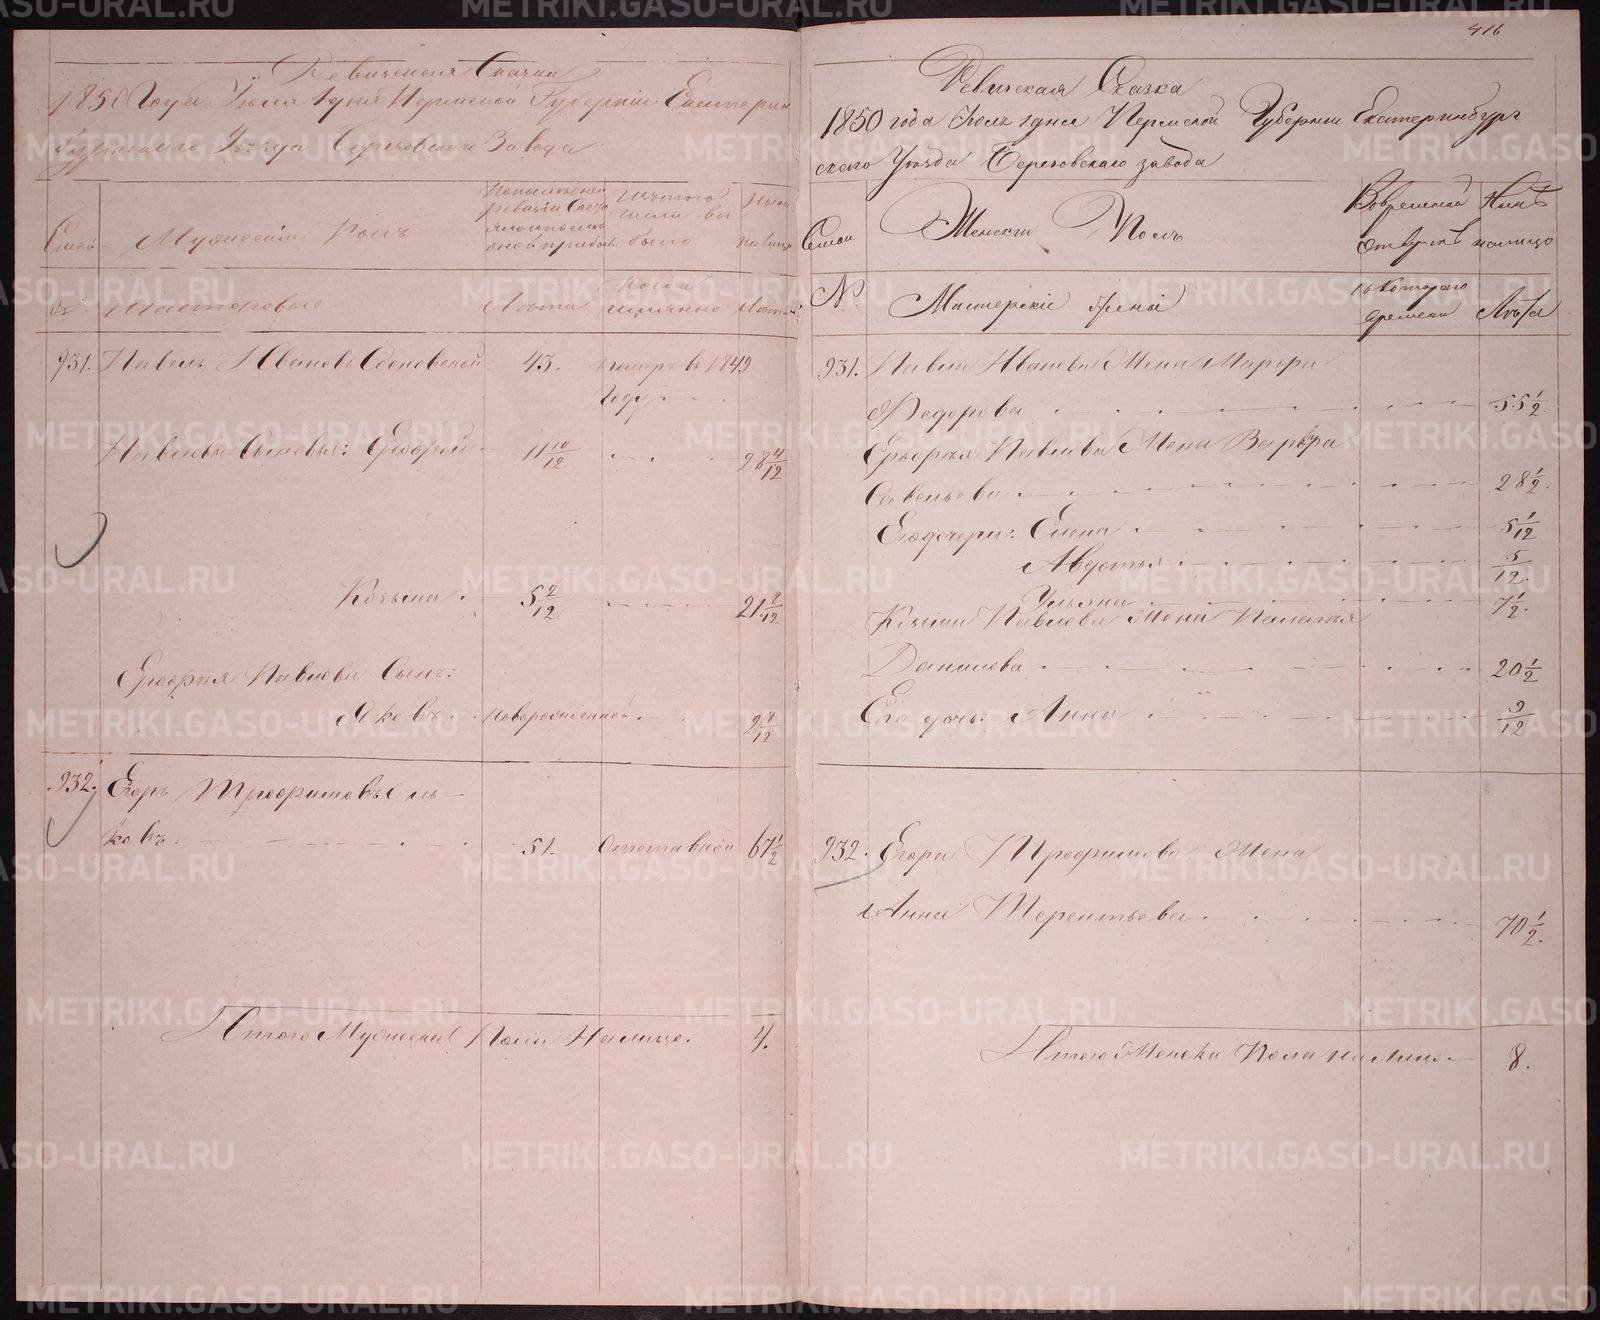 416
Ревижская Сказка
1850 Года Июля 1 дня Пермской Губернии Екатерин
бургскаго Уезда Березовскаго Завода
Семьи
Мужескій Полъ
По последней ревизіи состояло и после оной прибыло
Изъ того числа выбыло
Ныне на лицо
№
Мастеровые
Лѣта
Когда имянно
Лѣта
931. Павелъ Ивановъ Сосновской 43. померъ в 1849
Году
Павловы Сыновья: Ефорей 11 10/12 28 4/12
Козьма 5 2/12 21 8/12
Павлова Сынъ:
Яковъ новорожденной 2 8/12
932. Егоръ Трофимовъ
ковъ 51. Отставной 67 1/2
Итого Мужеска Пола На лицо. 4.
Ревижская Сказка
1850 года Июля 1 дня Пермской Губернии Екатеринбург
скаго Уезда Березовскаго завода
Семьи
Женскій Полъ
Во временной отлучкѣ
Нынѣ на лицо
№
Мастерскіе жены
съ котораго времени
Лѣта
931. Павла Иванова Жена Марфа
Федорова 55 1/2
Павлова Жена Варвара
Савельева 28 1/2
Его дочери: Елена 5 1/12
Авдотья 5/12
Ульяна 7 1/2
Козьмы Павлова Жена Пелагея
Данилова 20 1/2
Его дочь: Анна 9/12
932. Егора Трофимова Жена
Анна Терентьева 70 1/2
Итого Женска Пола на лицо 8.
METRIKI.GASO-URAL.RU